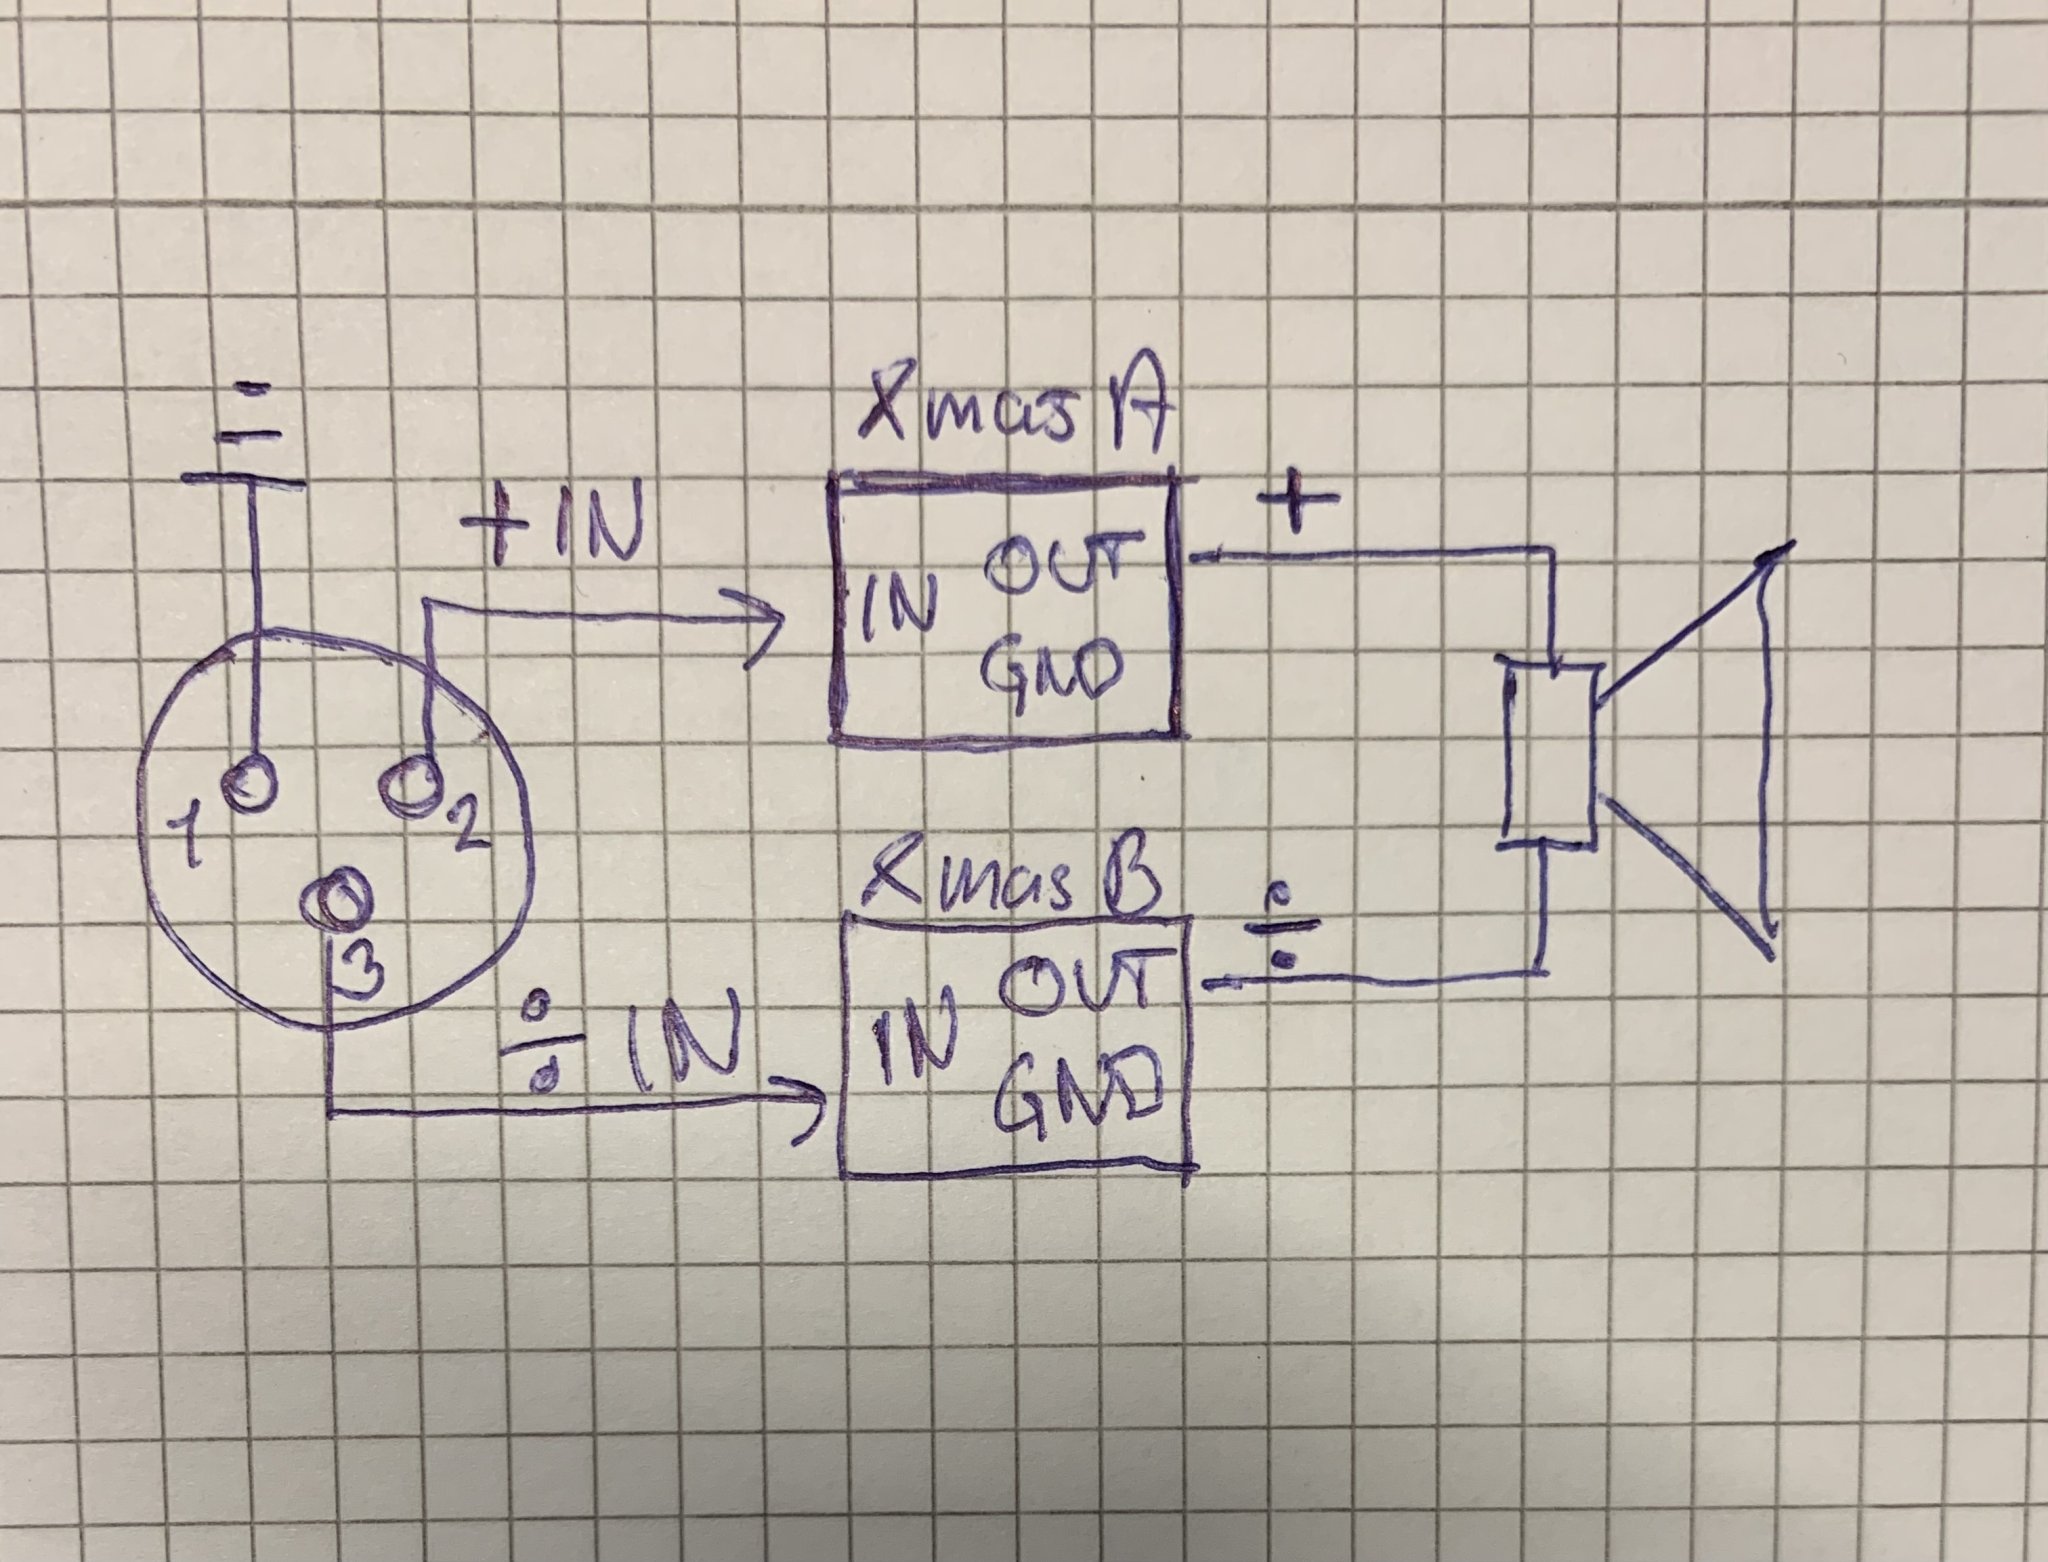 Xmas A
+ IN
+
IN OUT
GND
1 2
3
Xmas B
÷
÷ IN
IN OUT
GND